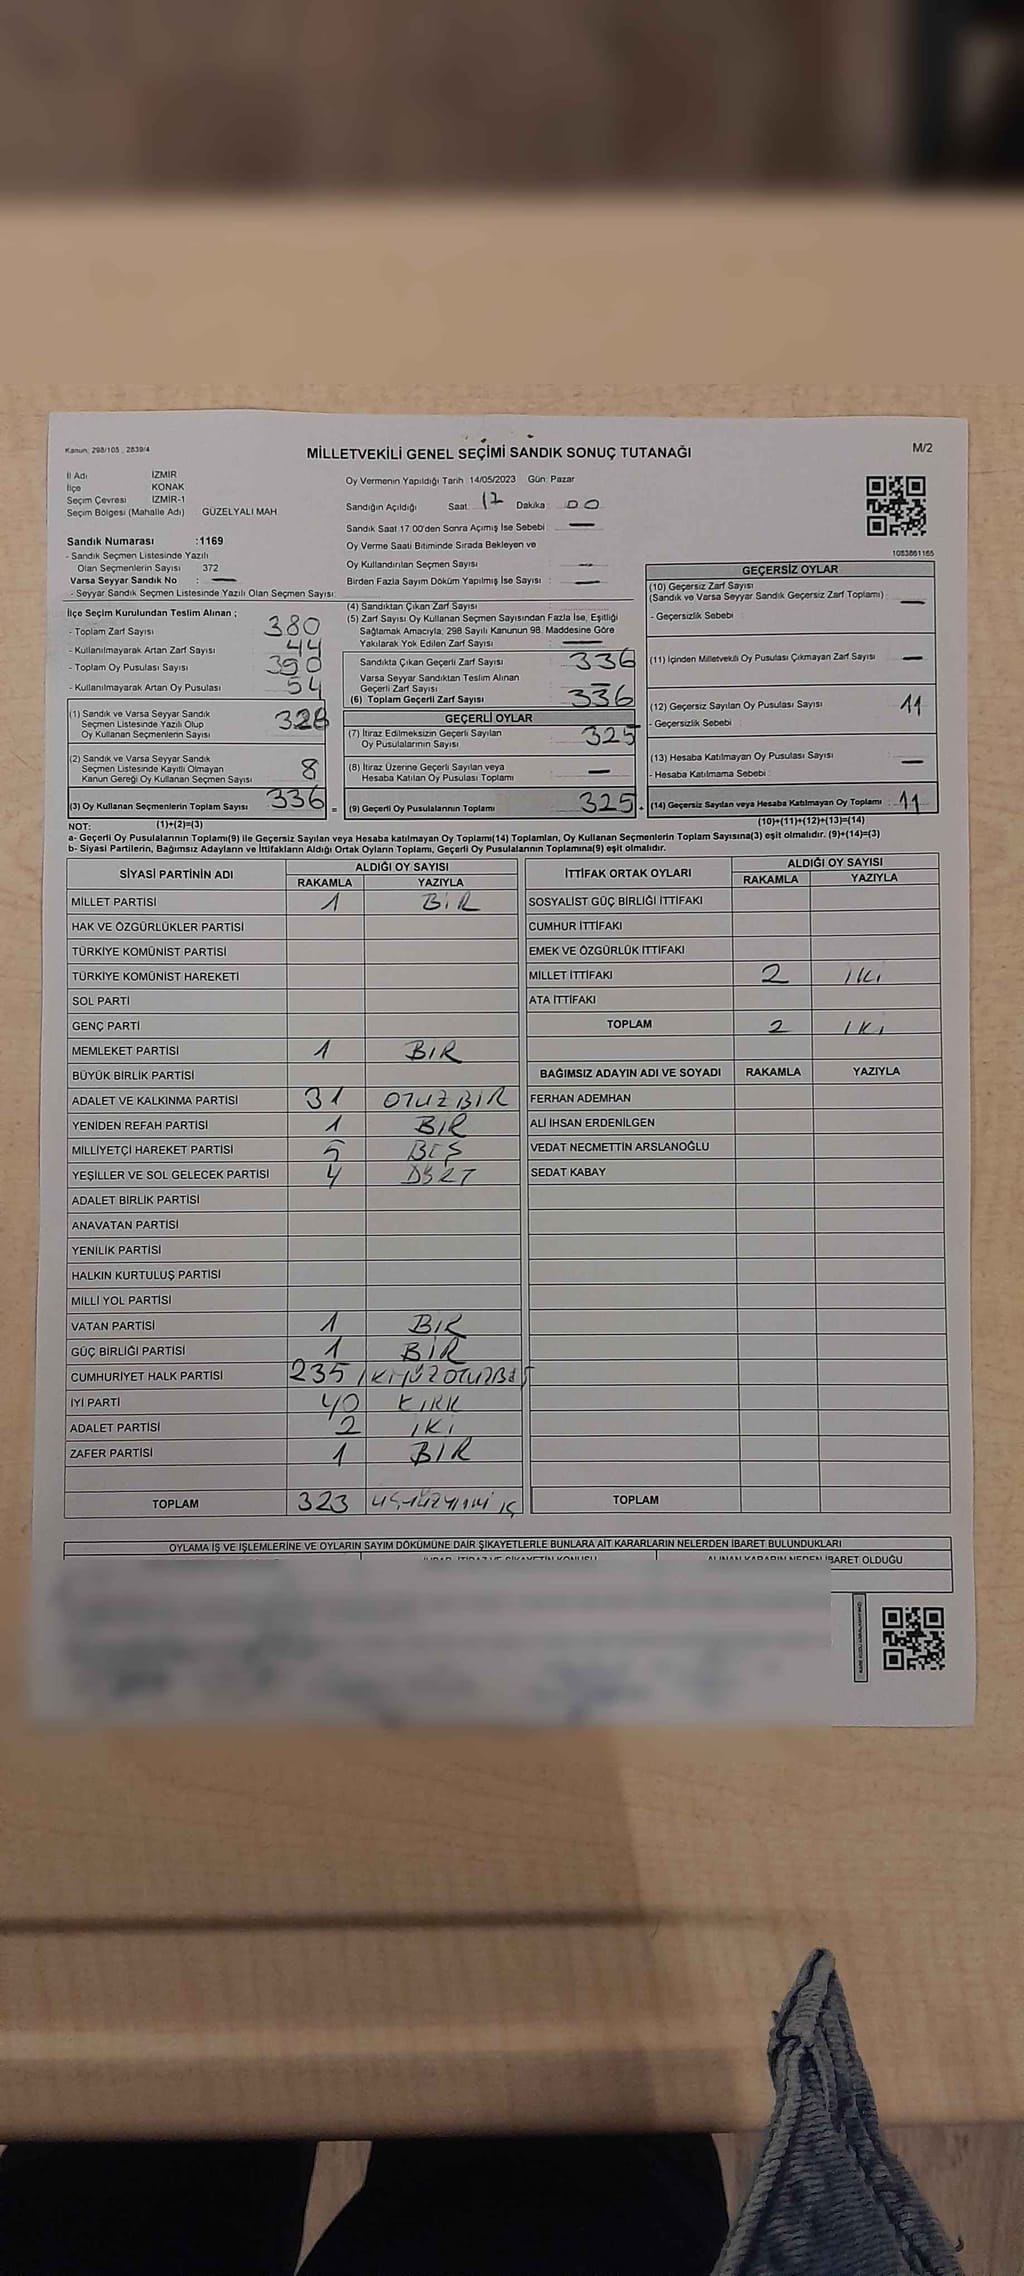 Kanun; 298/105 , 2839/4
MİLLETVEKİLİ GENEL SEÇİMİ SANDIK SONUÇ TUTANAĞI
M/2
İl Adı İZMİR
İlçe KONAK
Seçim Çevresi İZMİR-1
Seçim Bölgesi (Mahalle Adı) GÜZELYALI MAH.
Oy Vermenin Yapıldığı Tarih 14/05/2023 Gün: Pazar
Sandığın Açıldığı Saat 17 Dakika 00
Sandık Saat 17:00'den Sonra Açımış İse Sebebi : —
Oy Verme Saati Bitiminde Sırada Bekleyen ve
Oy Kullandırılan Seçmen Sayısı —
Birden Fazla Sayım Döküm Yapılmış İse Sayısı : —
1083861165
Sandık Numarası :1169
- Sandık Seçmen Listesinde Yazılı
Olan Seçmenlerin Sayısı 372
Varsa Seyyar Sandık No : —
- Seyyar Sandık Seçmen Listesinde Yazılı Olan Seçmen Sayısı:
İlçe Seçim Kurulundan Teslim Alınan ;
- Toplam Zarf Sayısı 380
- Kullanılmayarak Artan Zarf Sayısı 44
- Toplam Oy Pusulası Sayısı 390
- Kullanılmayarak Artan Oy Pusulası 54
(1) Sandık ve Varsa Seyyar Sandık
Seçmen Listesinde Yazılı Olup
Oy Kullanan Seçmenlerin Sayısı 328
(2) Sandık ve Varsa Seyyar Sandık
Seçmen Listesinde Kayıtlı Olmayan
Kanun Gereği Oy Kullanan Seçmen Sayısı 8
(3) Oy Kullanan Seçmenlerin Toplam Sayısı 336 =
(1)+(2)=(3)
(4) Sandıktan Çıkan Zarf Sayısı
(5) Zarf Sayısı Oy Kullanan Seçmen Sayısından Fazla İse, Eşitliği
Sağlamak Amacıyla; 298 Sayılı Kanunun 98. Maddesine Göre
Yakılarak Yok Edilen Zarf Sayısı : —
Sandıkta Çıkan Geçerli Zarf Sayısı 336
Varsa Seyyar Sandıktan Teslim Alınan
Geçerli Zarf Sayısı —
(6) Toplam Geçerli Zarf Sayısı 336
GEÇERLİ OYLAR
(7) İtiraz Edilmeksizin Geçerli Sayılan
Oy Pusulalarının Sayısı 325
(8) İtiraz Üzerine Geçerli Sayılan veya
Hesaba Katılan Oy Pusulası Toplamı —
(9) Geçerli Oy Pusulalarının Toplamı 325 +
GEÇERSİZ OYLAR
(10) Geçersiz Zarf Sayısı
(Sandık ve Varsa Seyyar Sandık Geçersiz Zarf Toplamı) : —
- Geçersizlik Sebebi :
(11) İçinden Milletvekili Oy Pusulası Çıkmayan Zarf Sayısı —
(12) Geçersiz Sayılan Oy Pusulası Sayısı 11
- Geçersizlik Sebebi :
(13) Hesaba Katılmayan Oy Pusulası Sayısı —
- Hesaba Katılmama Sebebi :
(14) Geçersiz Sayılan veya Hesaba Katılmayan Oy Toplamı : 11
(10)+(11)+(12)+(13)=(14)
NOT:
a- Geçerli Oy Pusulalarının Toplamı(9) ile Geçersiz Sayılan veya Hesaba katılmayan Oy Toplamı(14) Toplamları, Oy Kullanan Seçmenlerin Toplam Sayısına(3) eşit olmalıdır. (9)+(14)=(3)
b- Siyasi Partilerin, Bağımsız Adayların ve İttifakların Aldığı Ortak Oyların Toplamı, Geçerli Oy Pusulalarının Toplamına(9) eşit olmalıdır.
SİYASİ PARTİNİN ADI ALDIĞI OY SAYISI
RAKAMLA YAZIYLA
MİLLET PARTİSİ 1 BİR
HAK VE ÖZGÜRLÜKLER PARTİSİ
TÜRKİYE KOMÜNİST PARTİSİ
TÜRKİYE KOMÜNİST HAREKETİ
SOL PARTİ
GENÇ PARTİ
MEMLEKET PARTİSİ 1 BIR
BÜYÜK BİRLİK PARTİSİ
ADALET VE KALKINMA PARTİSİ 31 OTUZ BIR
YENİDEN REFAH PARTİSİ 1 BIR
MİLLİYETÇİ HAREKET PARTİSİ 5 BEŞ
YEŞİLLER VE SOL GELECEK PARTİSİ 4 DÖRT
ADALET BİRLİK PARTİSİ
ANAVATAN PARTİSİ
YENİLİK PARTİSİ
HALKIN KURTULUŞ PARTİSİ
MİLLİ YOL PARTİSİ
VATAN PARTİSİ 1 BIR
GÜÇ BİRLİĞİ PARTİSİ 1 BIR
CUMHURİYET HALK PARTİSİ 235 IKIYÜZOTUZBEŞ
İYİ PARTİ 40 KIRK
ADALET PARTİSİ 2 İKİ
ZAFER PARTİSİ 1 BIR
TOPLAM 323 ÜÇYÜZYİRMİ ÜÇ
İTTİFAK ORTAK OYLARI ALDIĞI OY SAYISI
RAKAMLA YAZIYLA
SOSYALİST GÜÇ BİRLİĞİ İTTİFAKI
CUMHUR İTTİFAKI
EMEK VE ÖZGÜRLÜK İTTİFAKI
MİLLET İTTİFAKI 2 İKİ
ATA İTTİFAKI
TOPLAM 2 İKİ
BAĞIMSIZ ADAYIN ADI VE SOYADI RAKAMLA YAZIYLA
FERHAN ADEMHAN
ALİ İHSAN ERDENİLGEN
VEDAT NECMETTİN ARSLANOĞLU
SEDAT KABAY
TOPLAM
OYLAMA İŞ VE İŞLEMLERİNE VE OYLARIN SAYIM DÖKÜMÜNE DAİR ŞİKAYETLERLE BUNLARA AİT KARARLARIN NELERDEN İBARET BULUNDUKLARI
İTİRAZ VE ŞİKAYETİN KONUSU
ALINAN KARARIN NEDEN İBARET OLDUĞU